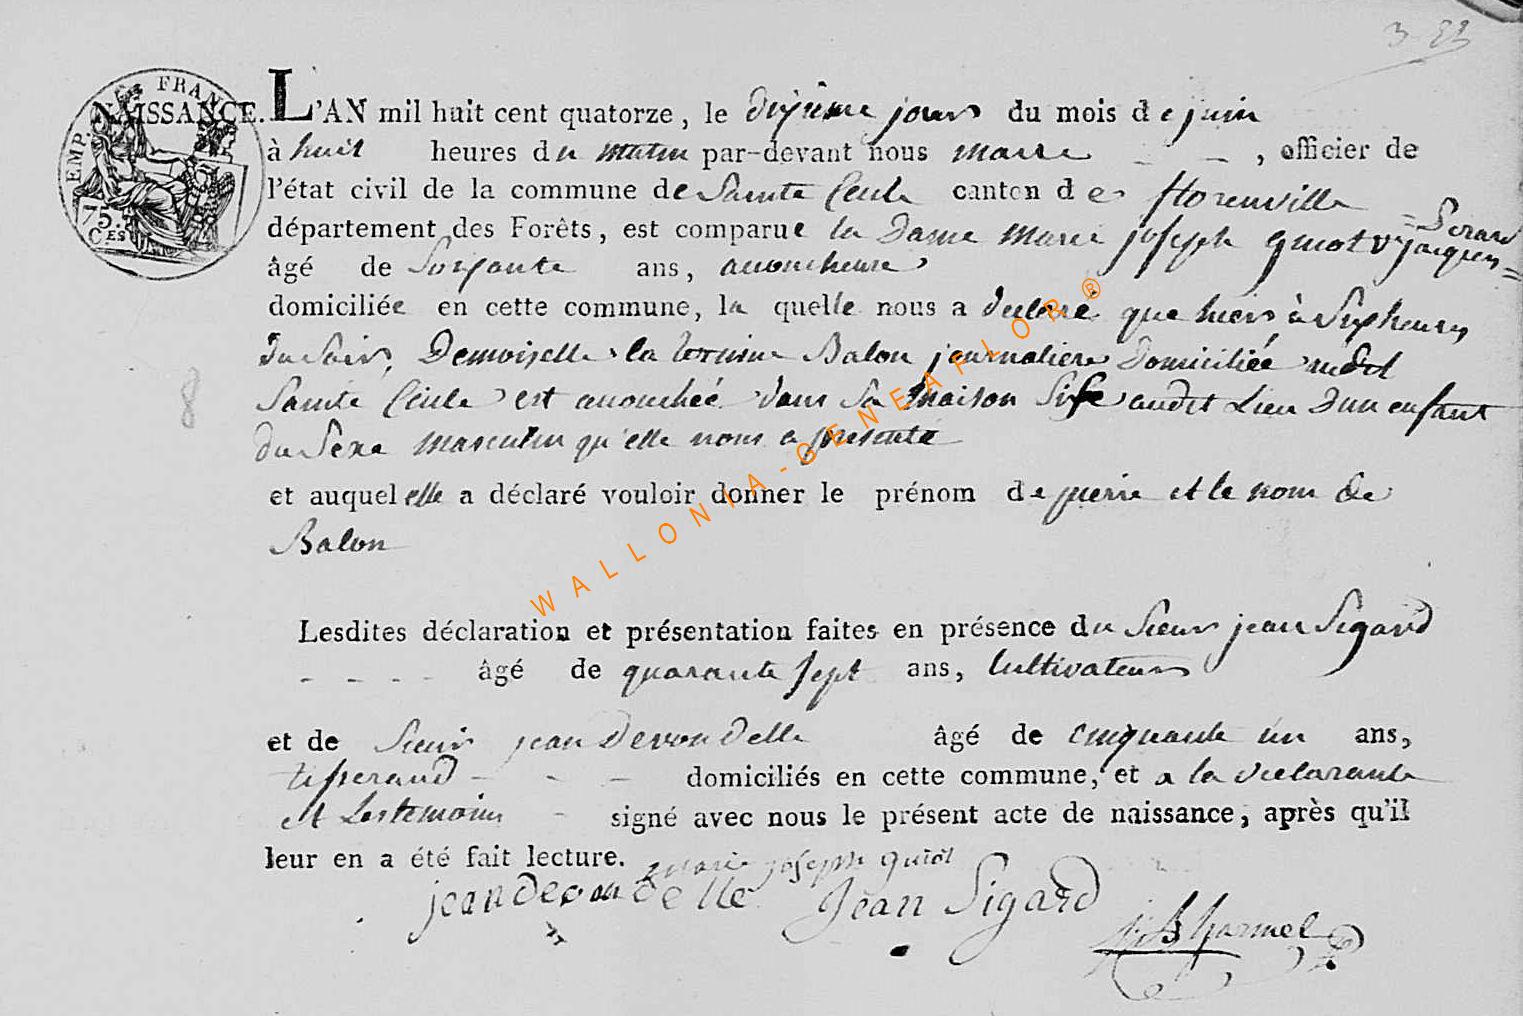 3
EMP. FRAN
75.
CES
NAISSANCE. L'AN mil huit cent quatorze, le dixieme jours du mois de juin
à huit heures du matin par-devant nous maire - - , officier de
l'état civil de la commune de Sainte Cecile canton de florenville
département des Forêts, est comparue la Dame marie joseph quiot
âgé de Soixante ans, acoucheure
domiciliée en cette commune, la quelle nous a declaré que hiers à Six heures
du Soirs, Demoiselle la Balon journaliere Domiciliée audit
Sainte Cecile est acouchée dans Sa maison Sise audit Lieu D'un enfant
du Sexe masculin qu'elle nous a presenté
et auquel elle a déclaré vouloir donner le prénom de pierre et le nom de
Balon
Lesdites déclaration et présentation faites en présence du Sieurs jean Sigard
- - - - âgé de quarante sept ans, Cultivateurs
et de Sieurs jean Devondelle âgé de cinquante un ans,
tisserand - - - domiciliés en cette commune, et a la declarante
et Les temoins - signé avec nous le présent acte de naissance, après qu'il
leur en a été fait lecture. marie joseph quiot
jean devondelle Jean Sigard
WALLONIA-GENEAFLOR®
8